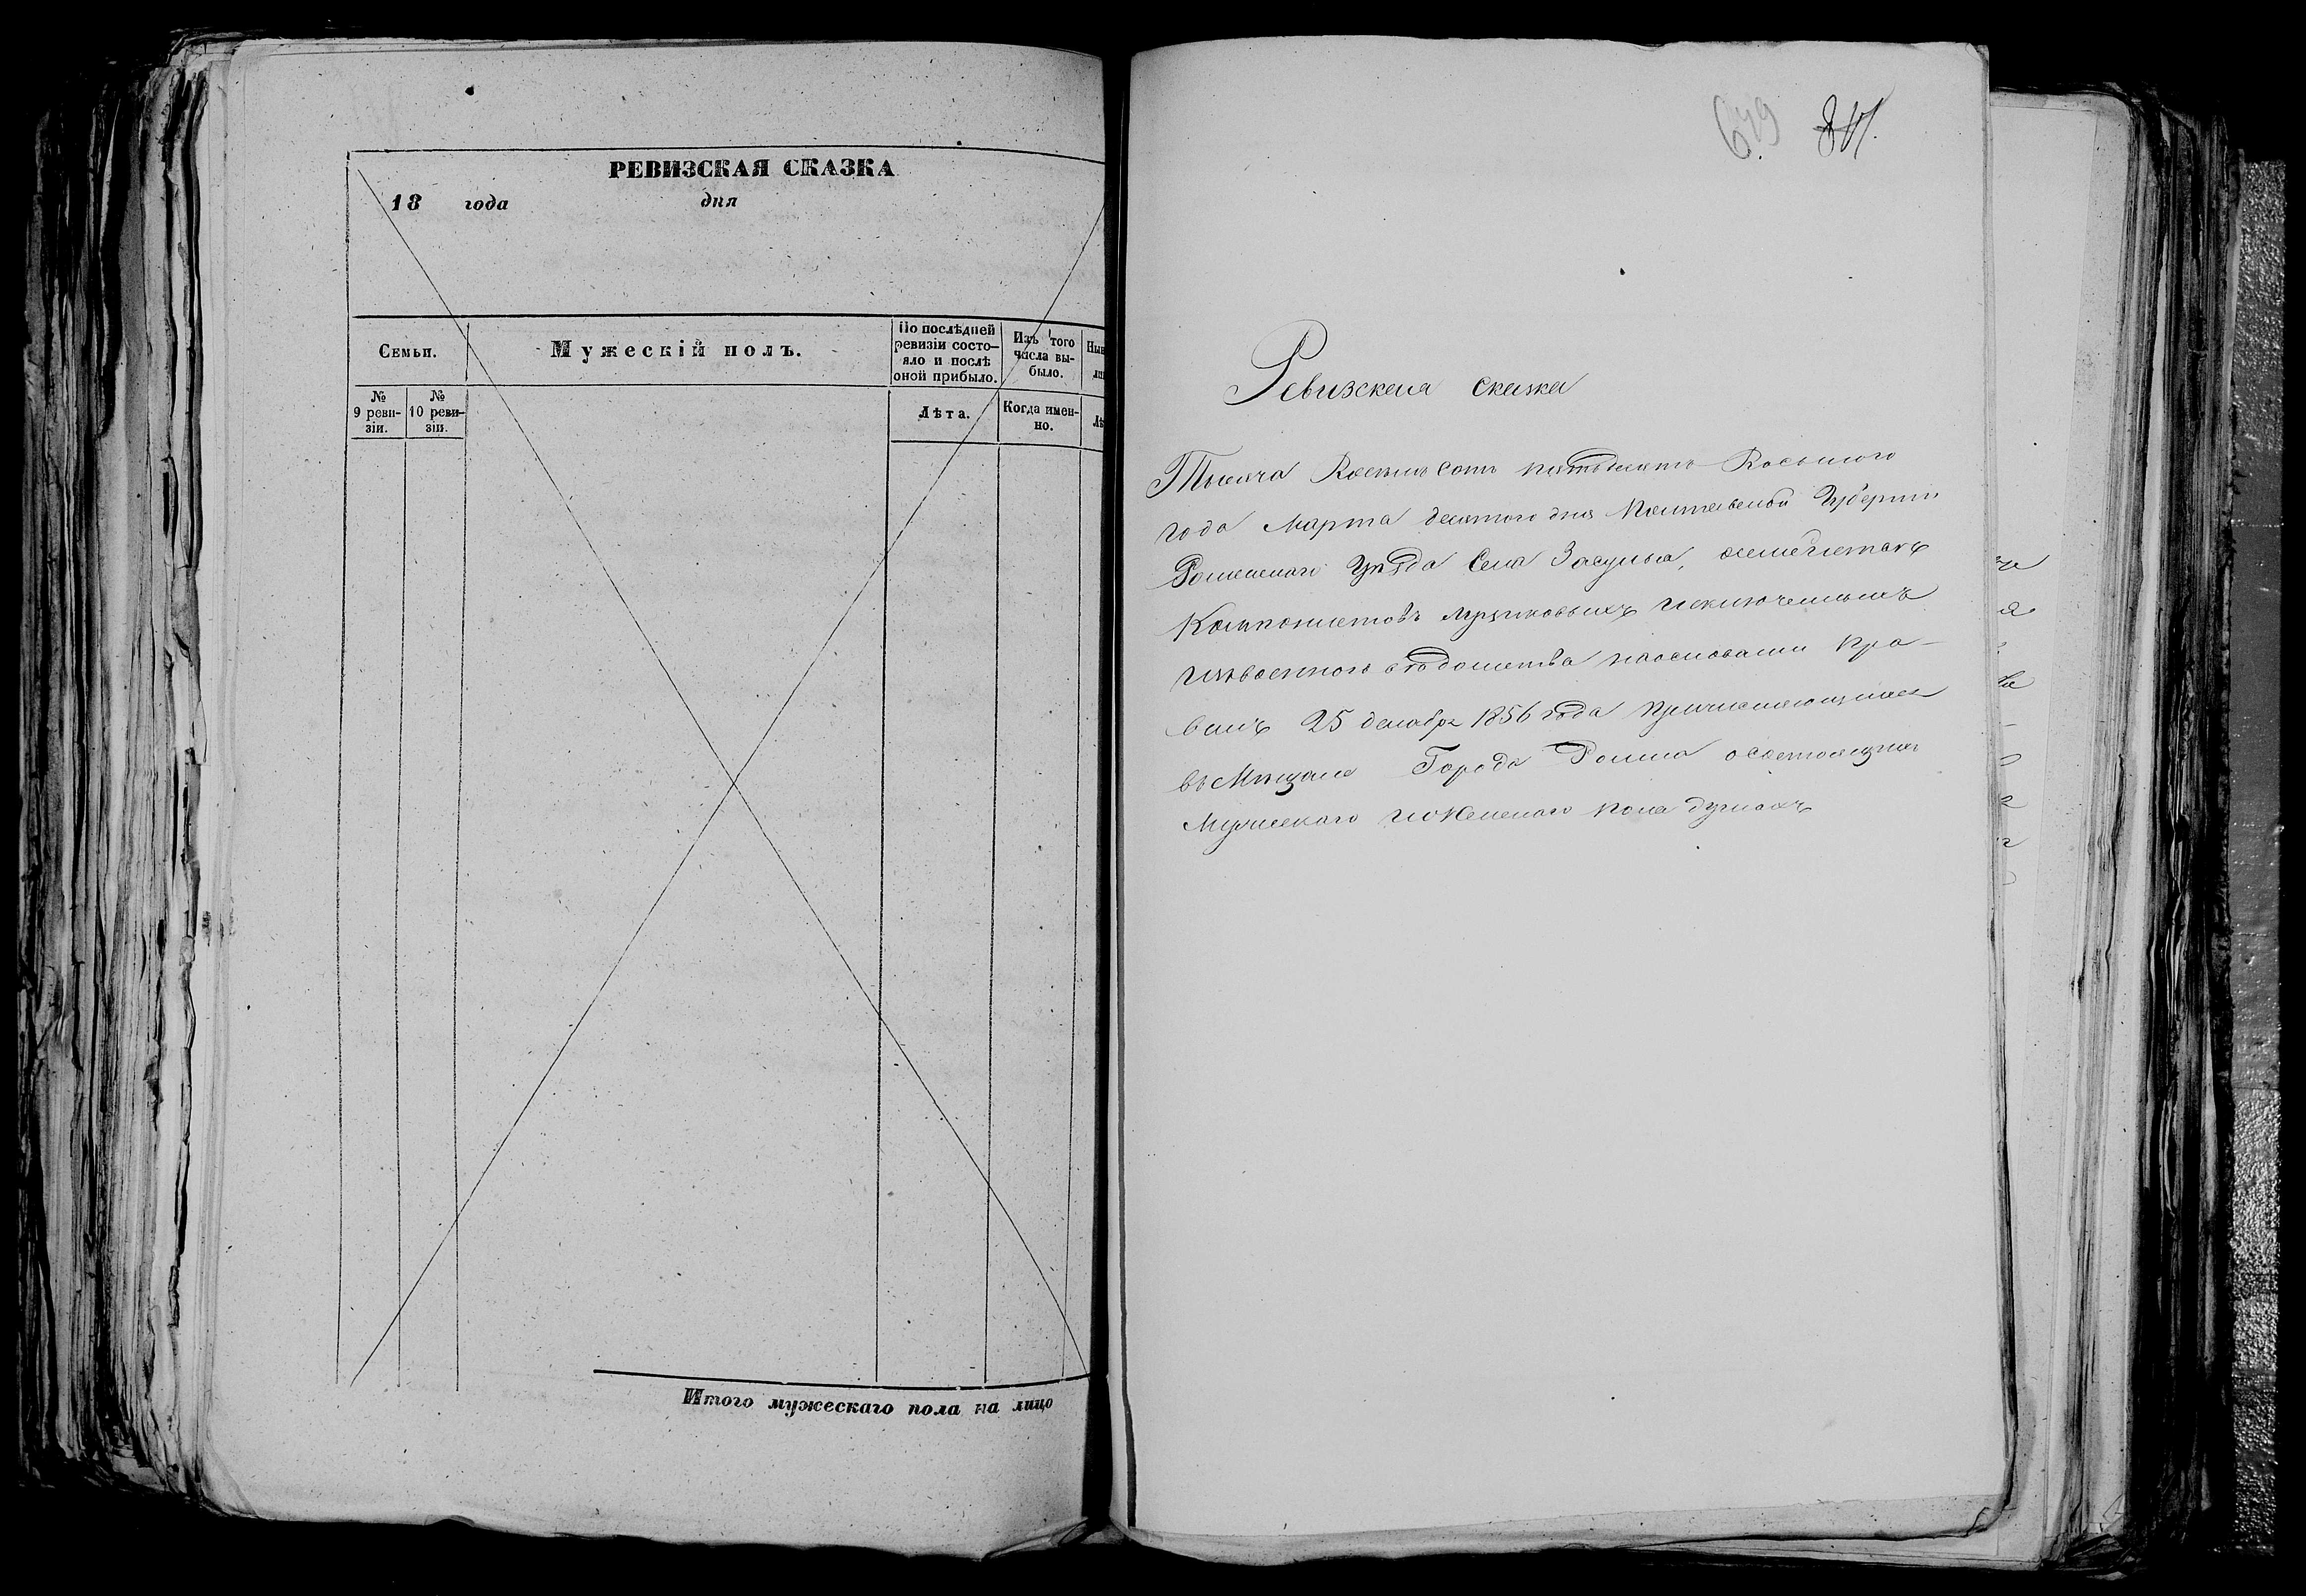 РЕВИЗСКАЯ СКАЗКА
18 года дня
Семьи.
Мужескій полъ.
По послѣдней ревизіи состо-
яло и послѣ
оной прибыло.
Изъ того
числа вы-
было.
№
9 реви-
зіи.
№
10 реви-
зіи.
Лѣта.
Когда имен-
но.
Итого мужескаго пола на лицо
649
Ревизская сказка
Тысяча Восемь сотъ пятьдесятъ Восьмого
года Марта десятого дня Полтавской Губернии
Роменского Уѣзда Села Засулья,
Кантонистовъ исключенныхъ
изъ военного вѣдомства наосновании пра-
вилъ 25 декабря 1856 года причисляющихся
въ Мѣщане Города Ромна о состоящихъ
Мужеского и Женского пола душахъ